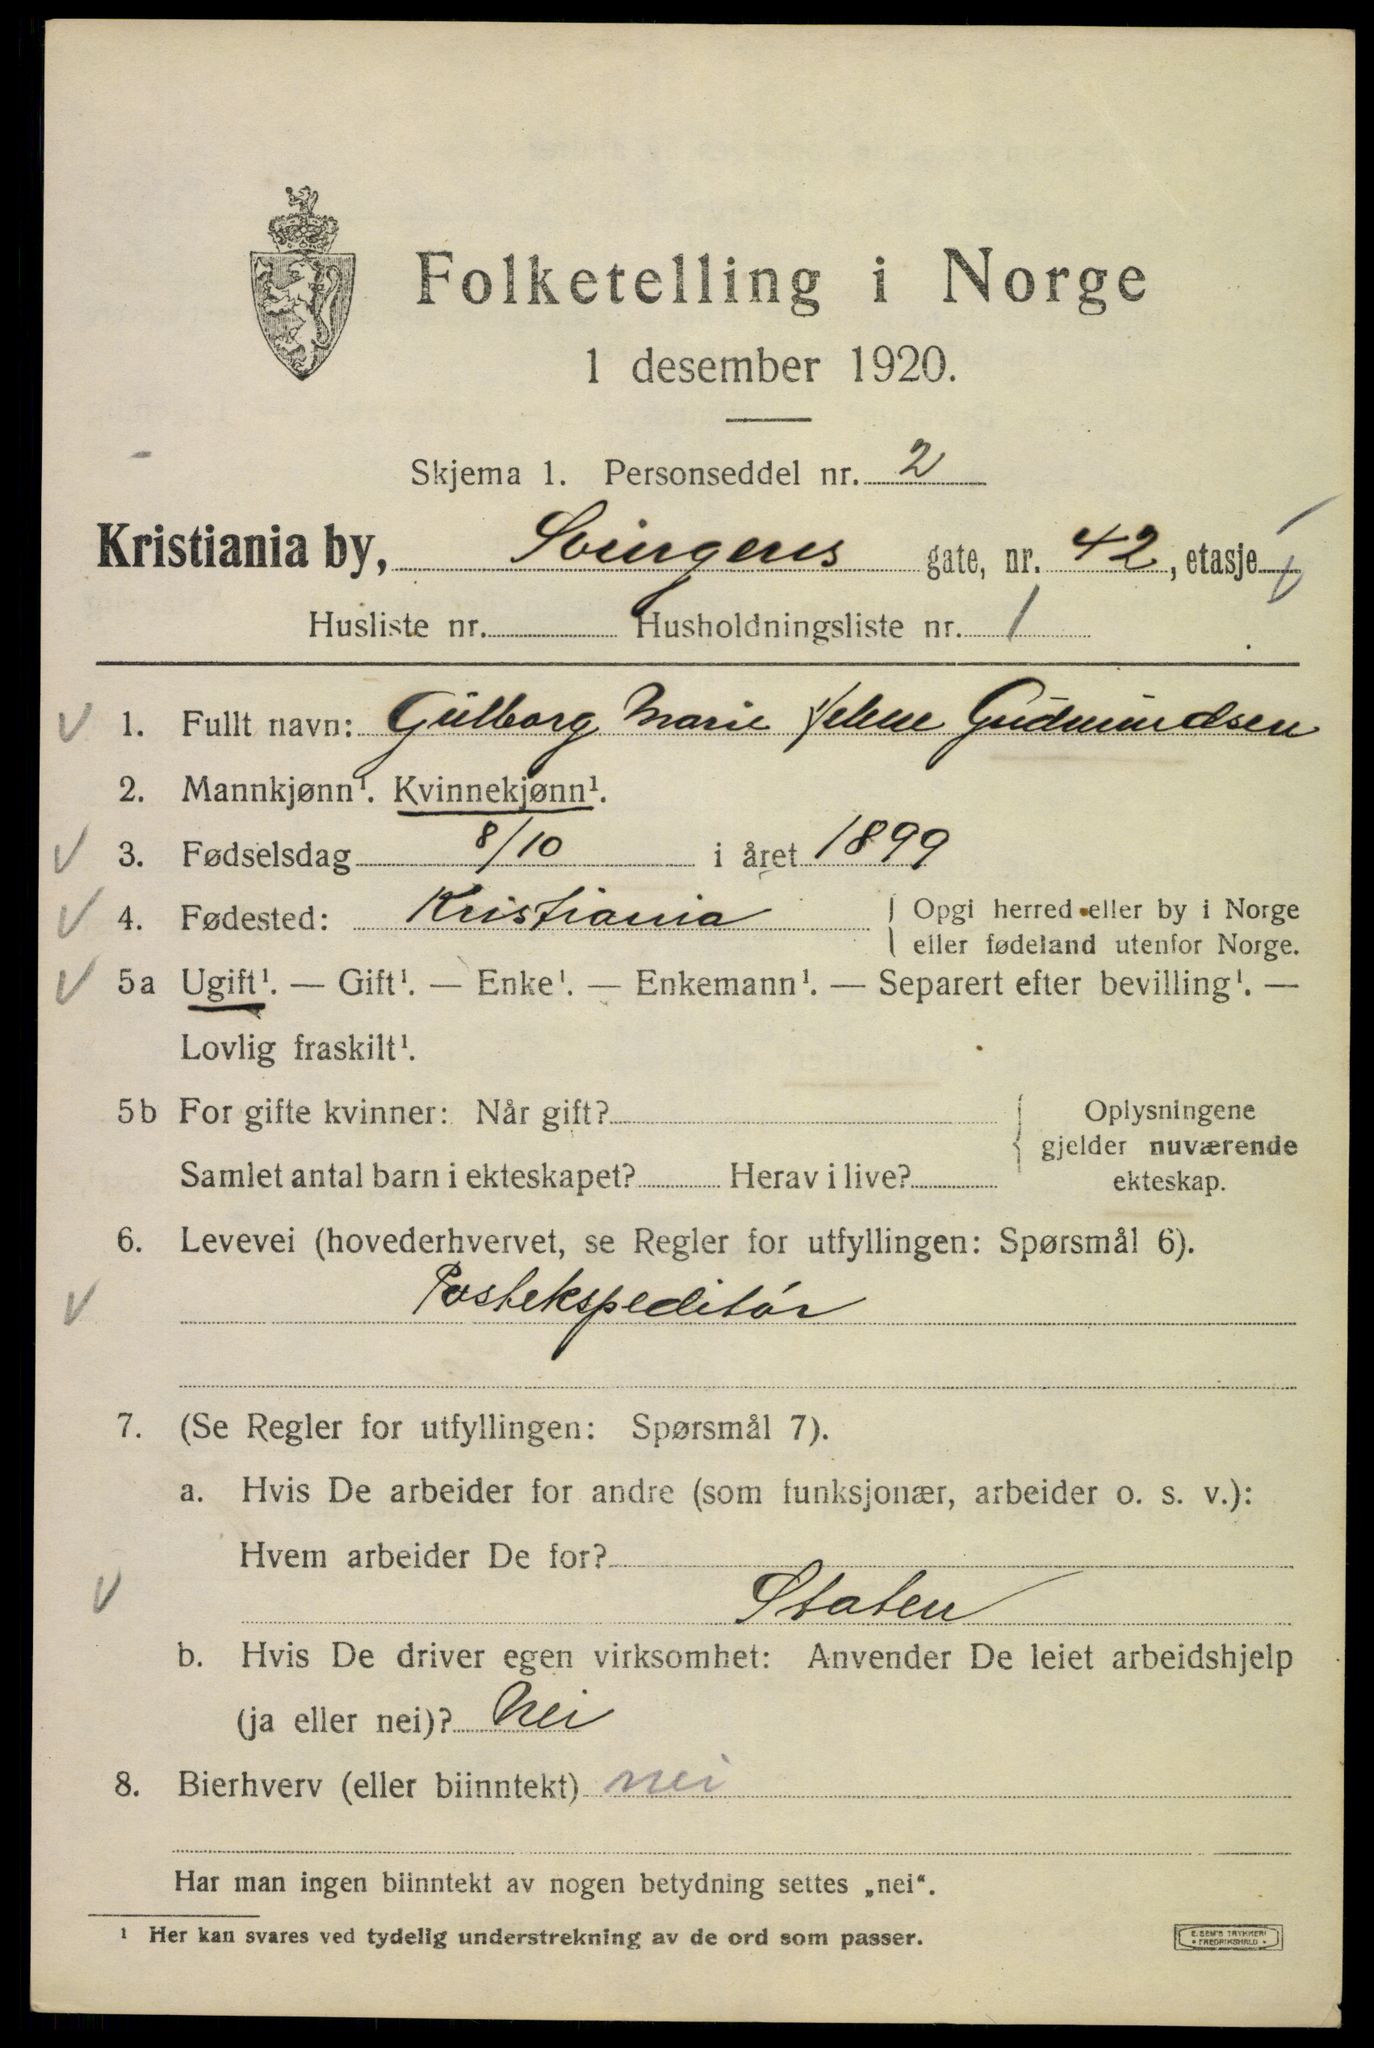 Folketelling i Norge
1 desember 1920.
Skjema 1. Personseddel nr. 2
Kristiania by, Svingens gate, nr. 42, etasje
Husliste nr. Husholdningsliste nr. 1
1. Fullt navn: Gulborg Marie Helene Gudmundsen
2. Mannkjønn¹. Kvinnekjønn¹.
3. Fødselsdag 8/10 i året 1899
4. Fødested: Kristiania Opgi herred eller by i Norge
eller fødeland utenfor Norge.
5a Ugift¹. — Gift¹. — Enke¹. — Enkemann¹. — Separert efter bevilling¹. —
Lovlig fraskilt¹.
5b For gifte kvinner: Når gift?
Samlet antal barn i ekteskapet? Herav i live?
Oplysningene
gjelder nuværende
ekteskap.
6. Levevei (hovederhvervet, se Regler for utfyllingen: Spørsmål 6).
Postekspeditør
7. (Se Regler for utfyllingen: Spørsmål 7).
a. Hvis De arbeider for andre (som funksjonær, arbeider o. s. v.):
Hvem arbeider De for?
Staten
b. Hvis De driver egen virksomhet: Anvender De leiet arbeidshjelp
(ja eller nei)? Nei
8. Bierhverv (eller biinntekt) nei
Har man ingen biinntekt av nogen betydning settes „nei“.
¹ Her kan svares ved tydelig understrekning av de ord som passer.
E. SEM'S TRYKKERI
• FREDRIKSHALD •